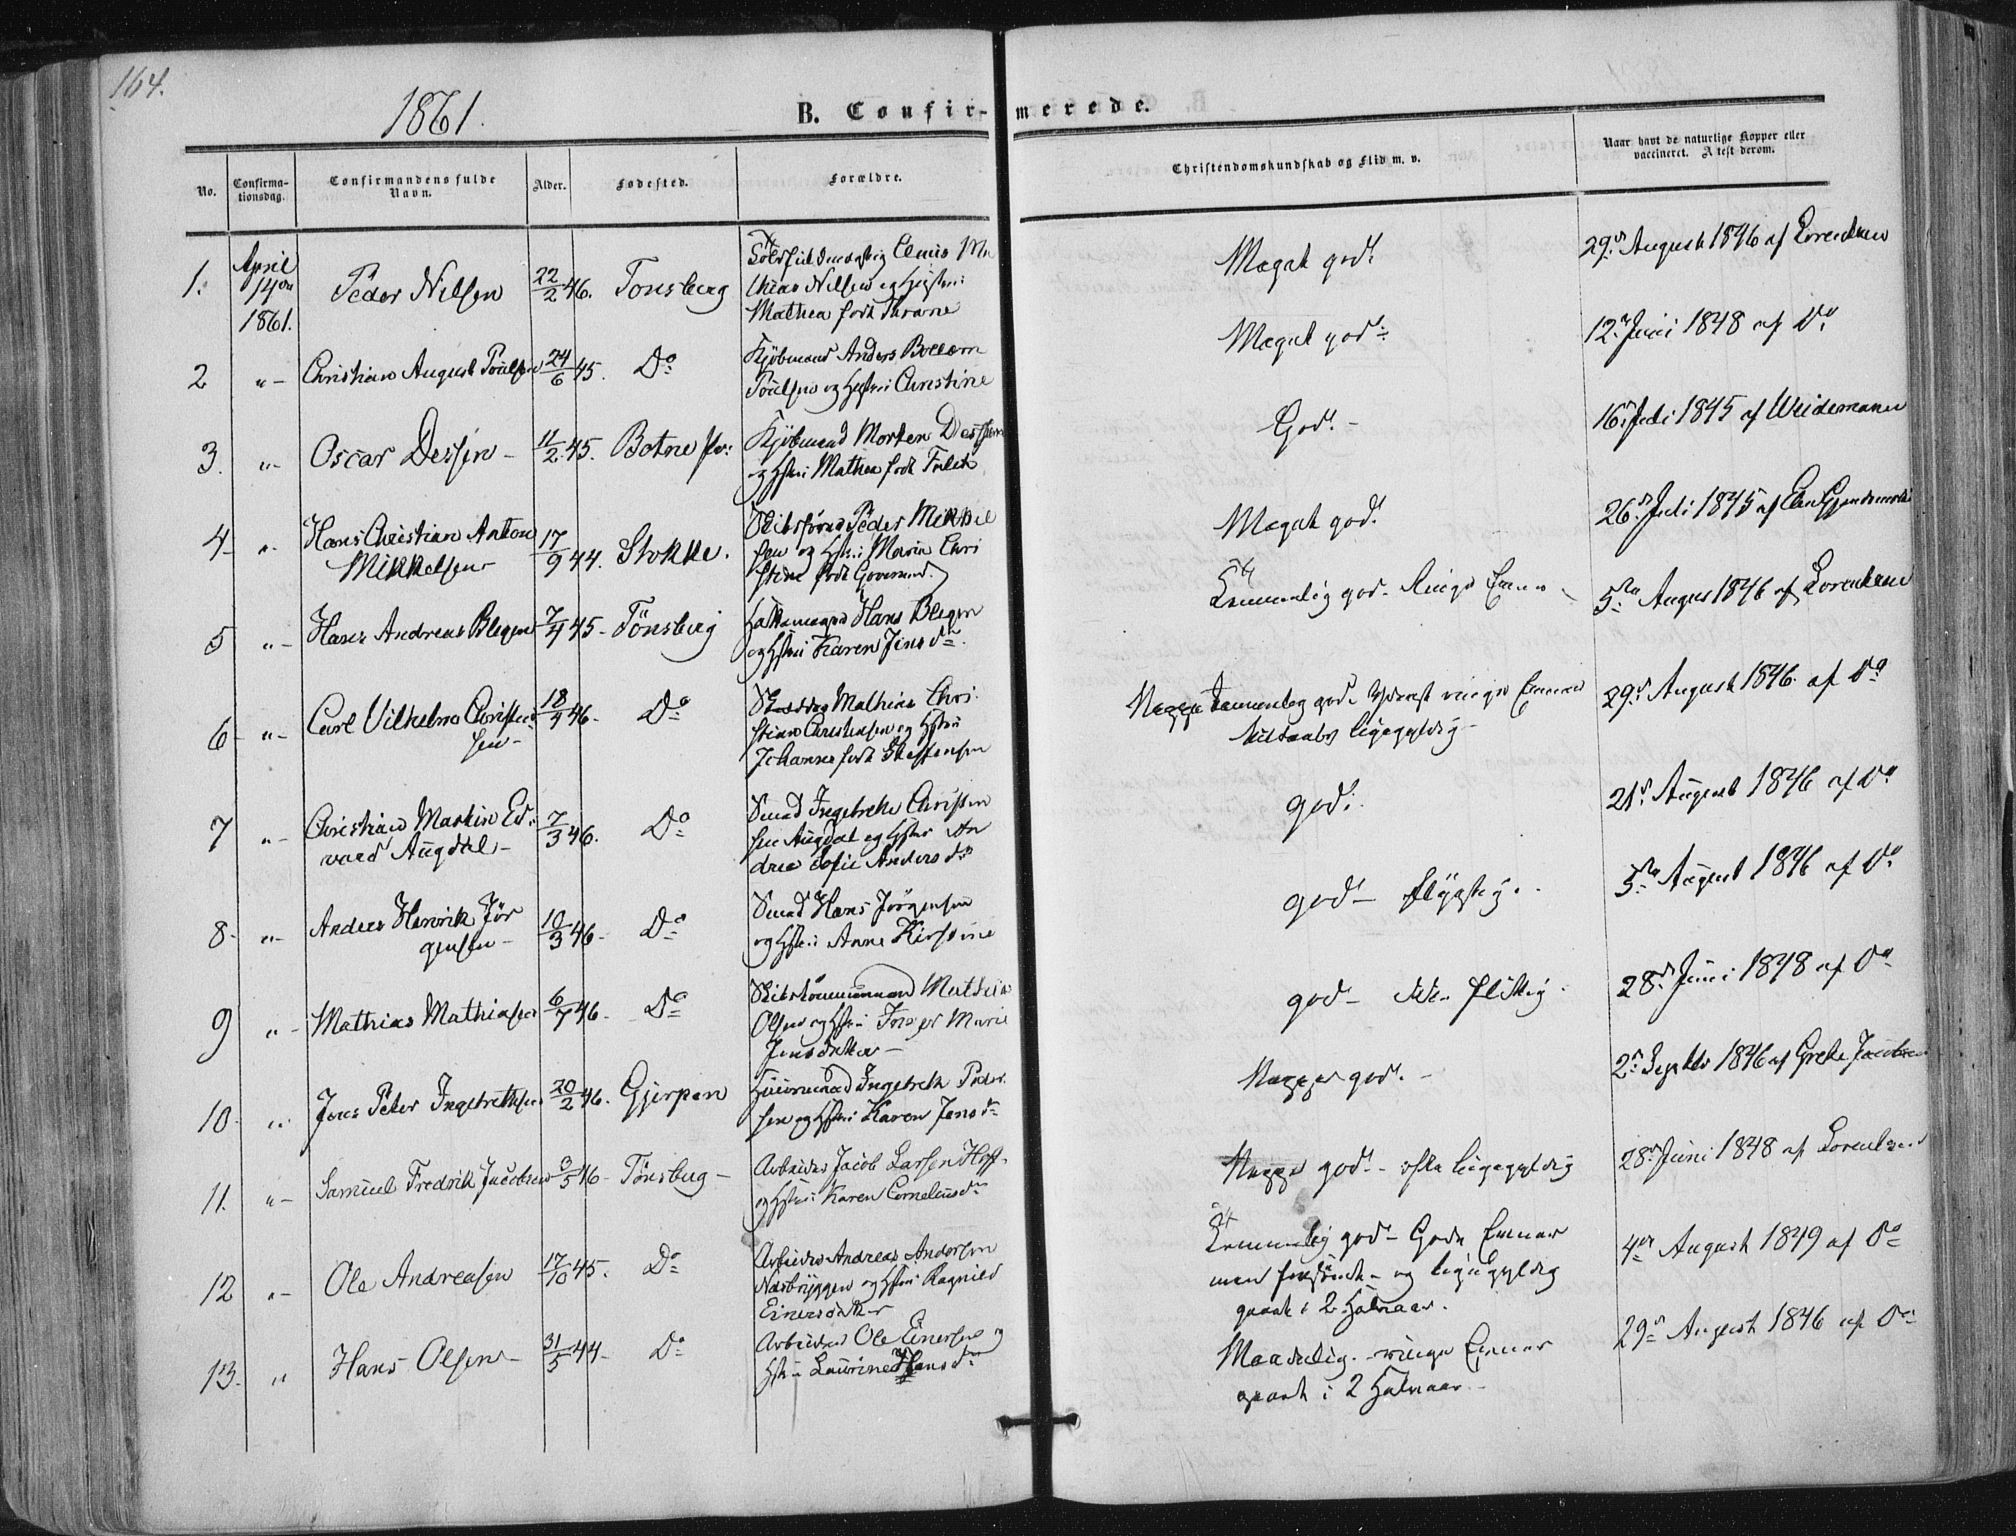 164.
1861.
B. Confir-merede.
No.
Confirma-
tionsdag.
Confirmandens fulde
Navn.
Alder.
Fødested.
Forældre.
Christendomskundskab og Flid m. v.
Naar havt de naturlige Kopper eller
vaccineret. Attest derom.
1. April 14de 1861. Peder Nilsen 22/2 46. Tonsberg
Nilsen og Hustru
Mathea født Thrane
Meget god. 29. August 1846 af Lorentzen
2 "- Christian August Poulsen 24/6 45. Do Kjøbmand Anders
Poulsen og Hustru Christine
Meget god. 12. Juni 1848 af Do
3. "- Oscar Dessen - 11/2 45. Botne Kjøbmand Morten Dessen
og Hstru Mathea født
God. - 16. Juli 1845 af Weidemann
4- "- Hans Christian Anton
Mikkelsen 17/9 44. Stokke. Peder Mikkel
sen og Hstru Maria Chri
stine født
Meget god. 26. Juli 1845 af
5 "- Hans Andreas Blegen 7/4 45- Tönsberg Hans Blegen
og Hstru Karen Jensdr.
Temmelig god- Ringe Evner - 5te August 1846 af Lorentzen
6- "- Carl Vilhelm Christen
sen - 18/4 46- Do Mathias Chri
stian Christensen og Hstru
Johanne født Steffensen
Neppe temmelig god. Yderst ringe Evner
ligegyldig - 29. August 1846. af Do
7 "- Christian Martin Ed-
vard Augdal - 7/3 46. Do Smed Ingebreth Christen
sen Augdal og Hstru An
drea Sofie Andersdr
god. 21. August 1846 af Do
8- "- Anders Henrik Jör
gensen - 10/3 46- Do Smed Hans Jörgensen
og Hstru Anne Kirstine
god - 5te August 1846 af Do
9 "- Mathias Mathiasen 6/7 46- Do Skibstömmermand Mathias
Olsen og Hstru Inger Marie
Jensdatter -
god - ikke flittig. 28. Juni 1848 af Do
10- " Jens Peter Ingebrethsen 20/2 46. Gjerpen Ingebreth Peder
sen og Hstru Karen Jensdr
Neppe god. - 2. Septbr 1846 af Grethe Jacobsen
11. "- Samuel Fredrik Jacobsen 3/5 46- Tönsberg - Arbeider Jacob Larsen
og Hstru Karen Cornelius dr
Neppe god - ofte ligegyldig 28. Juni 1848 af Lorentzen
12 "- Ole Andreasen 17/10 45. Do Arbeider Andreas Andersen
Næsbryggen og Hstru Ragnild
Einersdatter
Temmelig god - Gode Evner
men forsömt - og ligegyldig
gaaet i 2 Halvaar. 4de August 1849 af Do
13. " Hans Olsen - 31/5 44- Do Arbeider Ole Einersen og
Hstru Laurine Hansdr
Maadelig. - ringe Evner
gaaet i 2 Halvaar - 29. August 1846 af Do